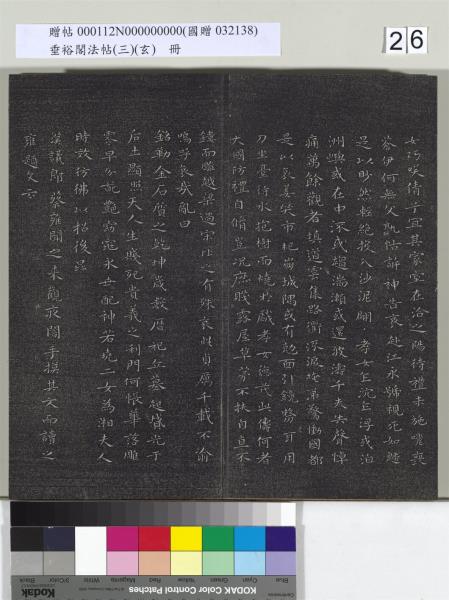 贈帖 000112N000000000(國贈 032138)
垂裕閣法帖(三)(玄) 冊
26
女巧咲倩兮宜其室家在洽之陽待禮未施嗟喪
蒼伊何無父孰怙訴神告哀赴江永號視死如歸
是以眇然輕絕投入沙泥翩=孝女乍沉乍浮或泊
洲嶼或在中流或趨湍瀨或還波濤千夫失聲悼
痛萬餘觀者填道雲集路衢流淚掩涕驚慟國都
是以哀姜哭市杞崩城隅或有剋面引鏡剺耳用
刀坐臺待水抱樹而燒於戲孝女德茂此儔何者
大國防禮自脩豈況庶賤露屋草茅不扶自直不
鏤而雕越梁過宋比之有殊哀此貞厲千載不渝
嗚呼哀哉亂曰
銘勒金石質之乾坤歲數曆祀丘墓起墳光于
后土顯照天人生賤死貴義之利門何悵華落雕
零早分葩艷窈窕永世配神若堯二女為湘夫人
時效彷彿以招後昆
漢議郎蔡雍聞之來觀夜闇手摸其文而讀之
雍題文云
KODAK Color Control Patches
Blue
Cyan
Green
Yellow
Red
Magenta
White
3/Color
Black